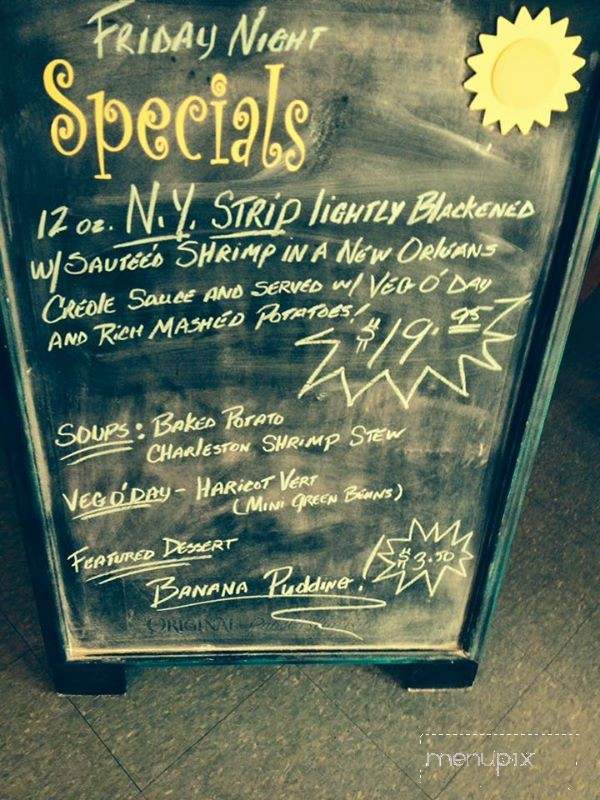 FRIDAY NIGHT
Specials
12 oz. N.Y. STRIP lightly Blackened
W/ SAUTEÉD SHRIMP IN A NEW ORLEANS
CREOLE SAUCE AND SERVED W/ VEG O' DAY
AND RICH MASHED POTATOES!
$19.95
SOUPS: BAKED POTATO
CHARLESTON SHRIMP STEW
VEG O' DAY - HARICOT VERT
(MINI GREEN BEANS)
FEATURED DESSERT
$3.50
BANANA PUDDING!
ORIGINAL
menupix